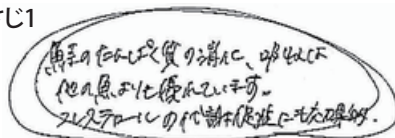 じ1
鮭のたんぱく質の消化、吸収は
他の魚よりも優れています。
コレステロールの代謝促進にも効果的。